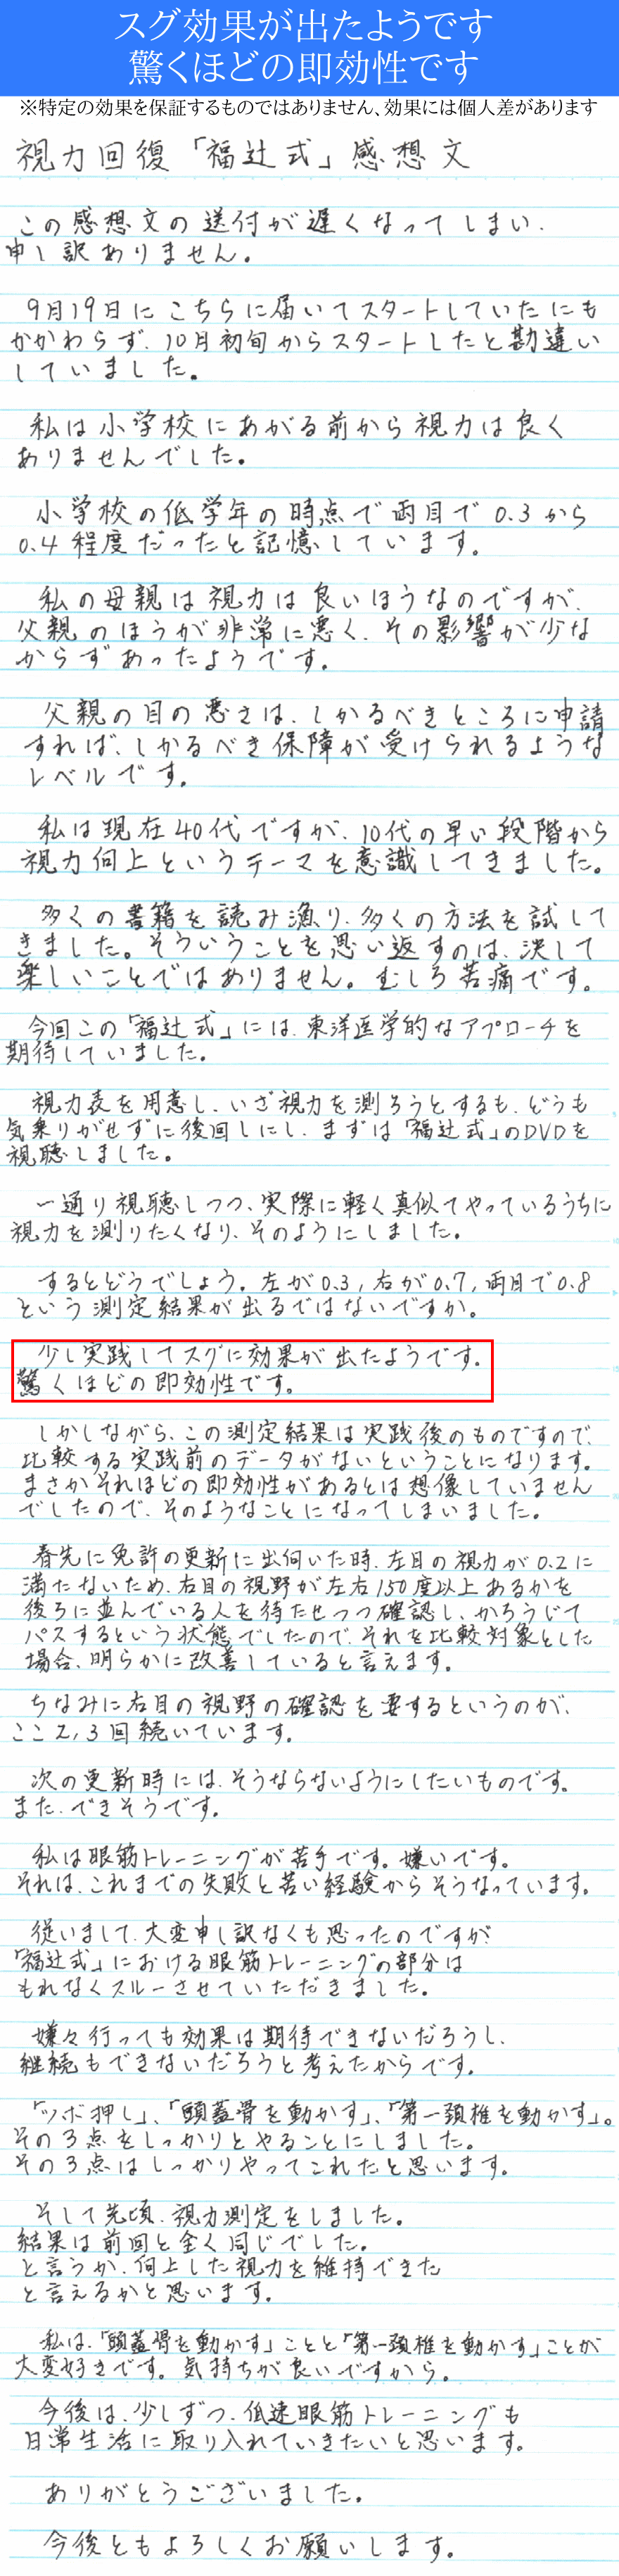 スグ効果が出たようです
驚くほどの即効性です
※特定の効果を保証するものではありません、効果には個人差があります
視力回復「福辻式」感想文
この感想文の送付が遅くなってしまい、
申し訳ありません。
9月19日にこちらに届いてスタートしていたにも
かかわらず、10月初旬からスタートしたと勘違い
していました。
私は小学校にあがる前から視力は良く
ありませんでした。
小学校の低学年の時点で両目で0.3から
0.4程度だったと記憶しています。
私の母親は視力は良いほうなのですが、
父親のほうが非常に悪く、その影響が少な
からずあったようです。
父親の目の悪さは、しかるべきところに申請
すれば、しかるべき保障が受けられるような
レベルです。
私は現在40代ですが、10代の早い段階から
視力向上というテーマを意識してきました。
多くの書籍を読み漁り、多くの方法を試して
きました。そういうことを思い返すのは、決して
楽しいことではありません。むしろ苦痛です。
今回この「福辻式」には、東洋医学的なアプローチを
期待していました。
視力表を用意し、いざ視力を測ろうとするも、どうも
気乗りがせずに後回しにし、まずは「福辻式」のDVDを
視聴しました。
一通り視聴しつつ、実際に軽く真似てやっているうちに
視力を測りたくなり、そのようにしました。
するとどうでしょう。左が0.3,右が0.7,両目で0.8
という測定結果が出るではないですか。
少し実践してスグに効果が出たようです。
驚くほどの即効性です。
しかしながら、この測定結果は実践後のものですので、
比較する実践前のデータがないということになります。
まさかそれほどの即効性があるとは想像していません
でしたので、そのようなことになってしまいました。
春先に免許の更新に出向いた時、左目の視力が0.2に
満たないため、右目の視野が左右150度以上あるかを
後ろに並んでいる人を待たせつつ確認し、かろうじて
パスするという状態でしたので、それを比較対象とした
場合、明らかに改善していると言えます。
ちなみに右目の視野の確認を要するというのが、
ここ2,3回続いています。
次の更新時には、そうならないようにしたいものです。
また、できそうです。
私は眼筋トレーニングが苦手です。嫌いです。
それは、これまでの失敗と苦い経験からそうなっています。
従いまして、大変申し訳なくも思ったのですが
「福辻式」における眼筋トレーニングの部分は
もれなくスルーさせていただきました。
嫌々行っても効果は期待できないだろうし、
継続もできないだろうと考えたからです。
「ツボ押し」、「頭蓋骨を動かす」、「第一頚椎を動かす」。
その3点をしっかりとやることにしました。
その3点はしっかりやってこれたと思います。
そして先頃、視力測定をしました。
結果は前回と全く同じでした。
と言うか、向上した視力を維持できた
と言えるかと思います。
私は、「頭蓋骨を動かす」ことと「第一頚椎を動かす」ことが
大変好きです。気持ちが良いですから。
今後は、少しずつ、低速眼筋トレーニングも
日常生活に取り入れていきたいと思います。
ありがとうございました。
今後ともよろしくお願いします。